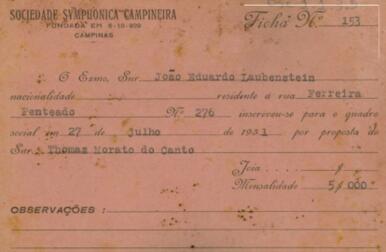 SOCIEDADE SYMPHONICA CAMPINEIRA
FUNDADA EM 6-10-929
CAMPINAS
Ficha N.º 153
O Exmo, Snr João Eduardo Laubenstein
nacionalidade residente á rua Ferreira
Penteado N.º 276 inscreveu-se para o quadro
social em 27 de julho de 1931 por proposta do
Snr. Thomaz Morato do Canto
Joia $
Mensalidade 5$000
OBSERVAÇÕES :